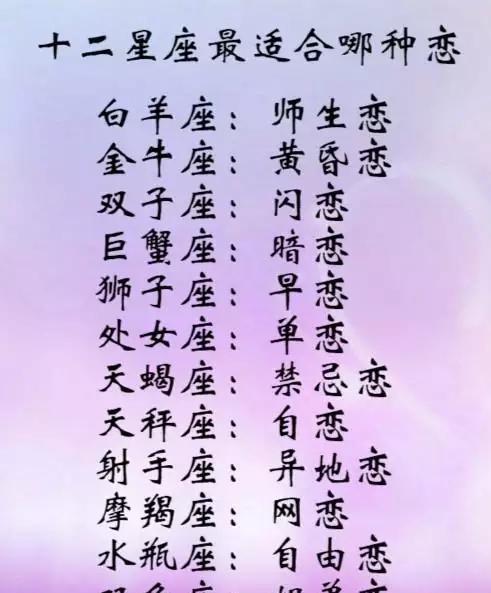 十二星座最适合哪种恋
白羊座：师生恋
金牛座：黄昏恋
双子座：闪恋
巨蟹座：暗恋
狮子座：早恋
处女座：单恋
天蝎座：禁忌恋
天秤座：自恋
射手座：异地恋
摩羯座：网恋
水瓶座：自由恋